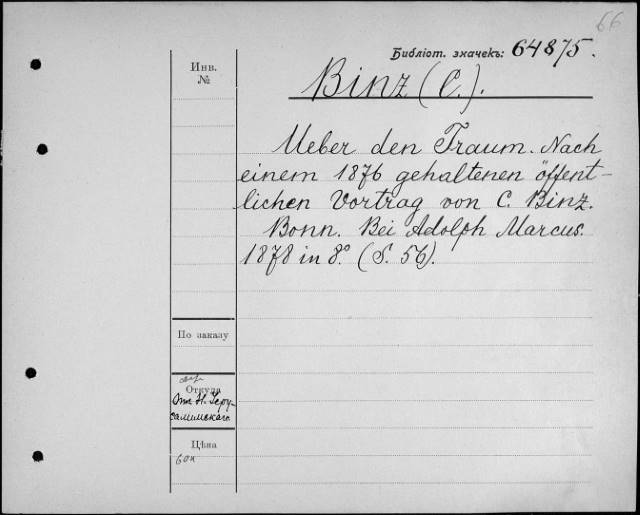 66
Библіот. значекъ: 64875.
Инв.
№
Binz (C.).
Ueber den Traum. Nach
einem 1876 gehaltenen öffent-
lichen Vortrag von C. Binz.
Bonn. Bei Adolph Marcus.
1878 in 8.° (S. 56).
По заказу
Откуда
Отъ Н. Іеру-
салимскаго
Цѣна
60к